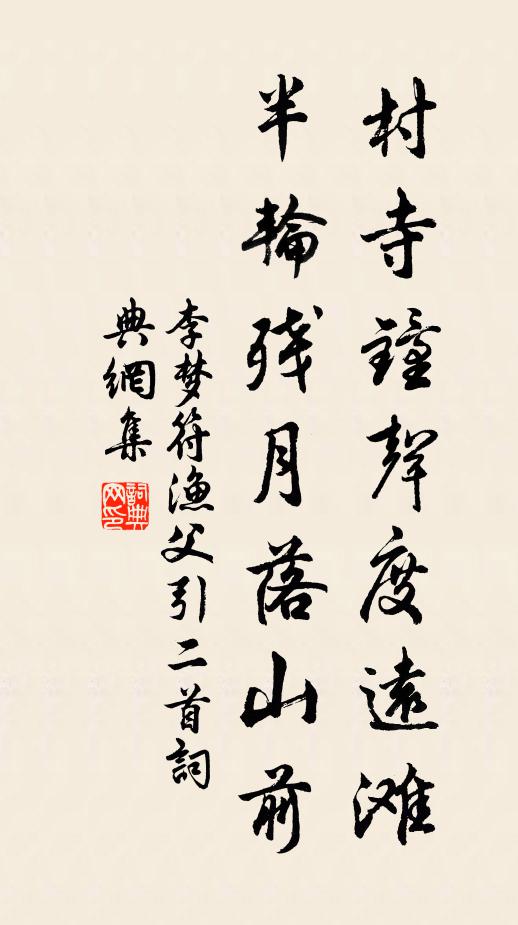 村寺鐘聲度遠滩
半輪残月落山前
李梦符漁父引二首詞
典網集
詞典网印